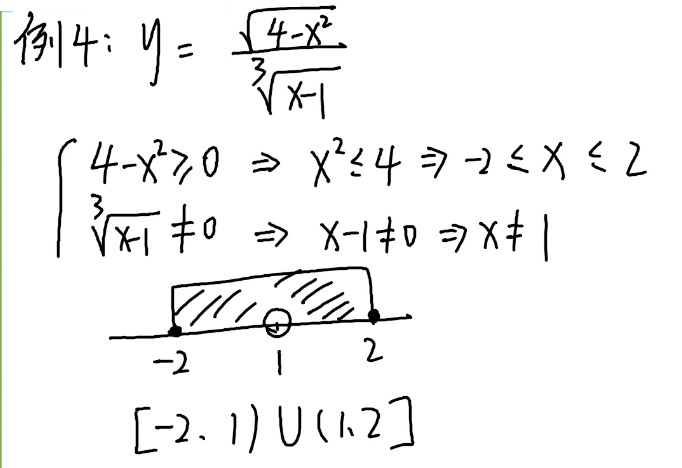 例4: y = √(4-x²) / ∛(x-1)
{ 4-x²≥0 ⇒ x²≤4 ⇒ -2≤x≤2
∛(x-1) ≠0 ⇒ x-1≠0 ⇒ x≠1
-2 1 2
[-2, 1) ∪ (1, 2]